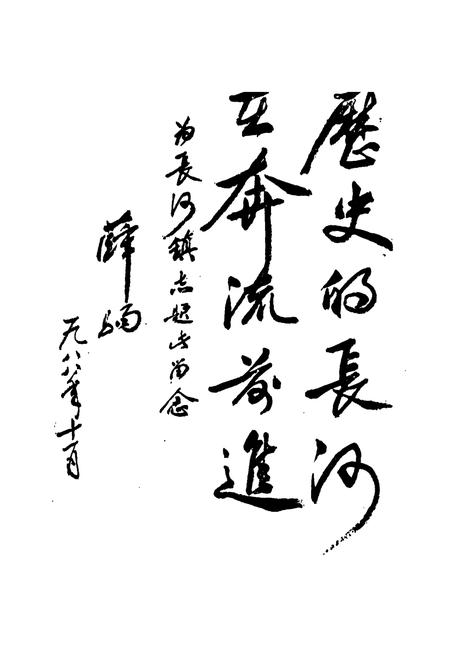 歷史的長河
在奔流前進
为長河鎮志題此留念
薛驹
一九八八年十一月